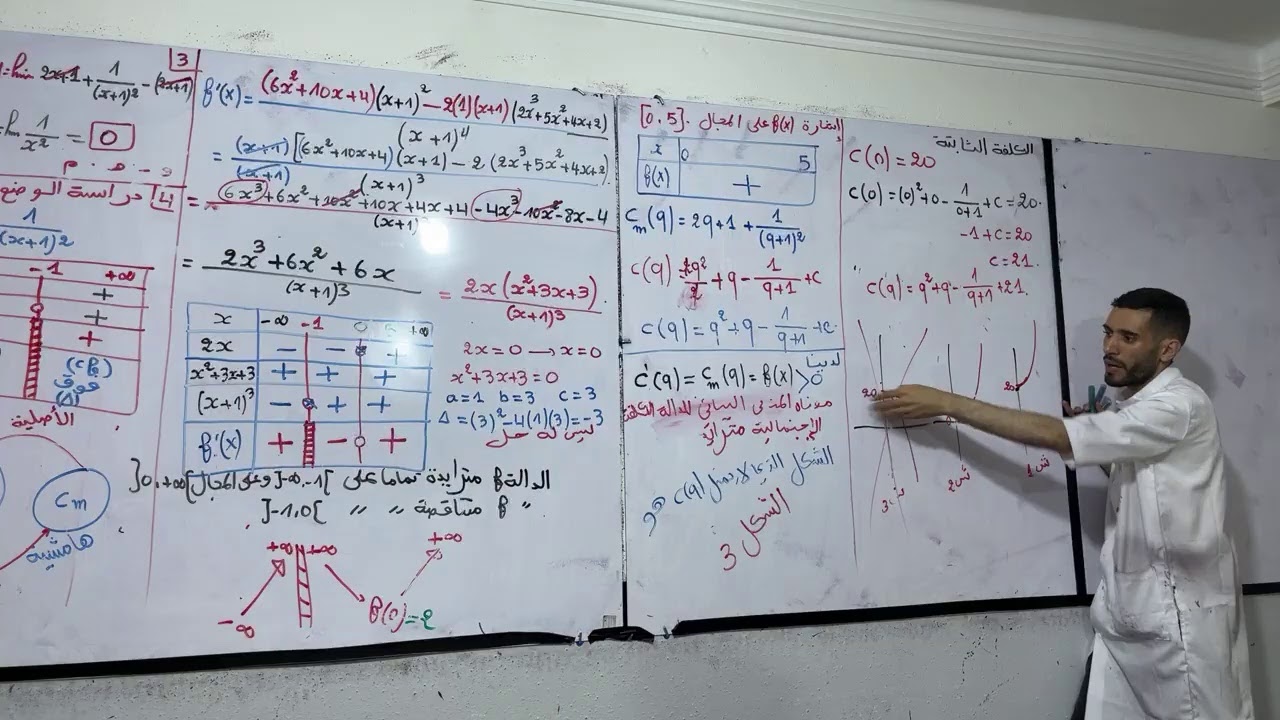 3
= lim 2x+1 + 1/(x+1)² - (2x+1)
= lim 1/x² = 0
و . م . م
4 دراسة الوضع
1/(x+1)²
-1 +∞
+
+
+
(Cf)
فوق
(Δ)
الأصلية
Cm
هامشية
f'(x) = (6x²+10x+4)(x+1)² - 2(1)(x+1)(2x³+5x²+4x+2) / (x+1)⁴
= (x+1)[(6x²+10x+4)(x+1) - 2(2x³+5x²+4x+2)] / (x+1) (x+1)³
= 6x³+6x²+10x²+10x+4x+4-4x³-10x²-8x-4 / (x+1)³
= 2x³+6x²+6x / (x+1)³ = 2x(x²+3x+3) / (x+1)³
x -∞ -1 0 +∞
2x - - +
x²+3x+3 + + +
(x+1)³ - + +
f'(x) + - +
2x=0 → x=0
x²+3x+3=0
a=1 b=3 c=3
Δ=(3)²-4(1)(3)=-3
ليس له حل
الدالة f متزايدة تماما على ]-∞,-1[ وعلى المجال ]0,+∞[
" f متناقصة " " ]-1,0[
+∞ +∞ +∞
-∞ f(0)=2
f(x) على المجال [0,5].
x 0 5
f(x) +
Cm(q) = 2q+1 + 1/(q+1)²
C(q) = 2q²/2 + q - 1/(q+1) + c
C(q) = q² + q - 1/(q+1) + c
لدينا
C'(q) = Cm(q) = f(x) > 0
البياني للدالة الكلفة
الإجمالية متزايد
الشكل الذي C(q)
هو
الشكل 3
الكلفة الثابتة
C(0) = 20
C(0) = (0)² + 0 - 1/(0+1) + c = 20.
-1+c=20
c=21.
C(q) = q² + q - 1/(q+1) + 21.
20
20
ش3
ش2
ش1